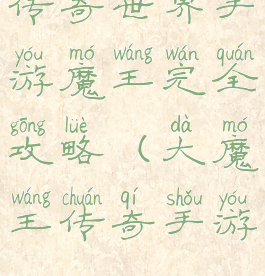 传奇世界手
yóu mó wáng wán quán
游魔王完全
gōng lüè dà mó
攻略（大魔
wáng chuán qí shǒu yóu
王传奇手游